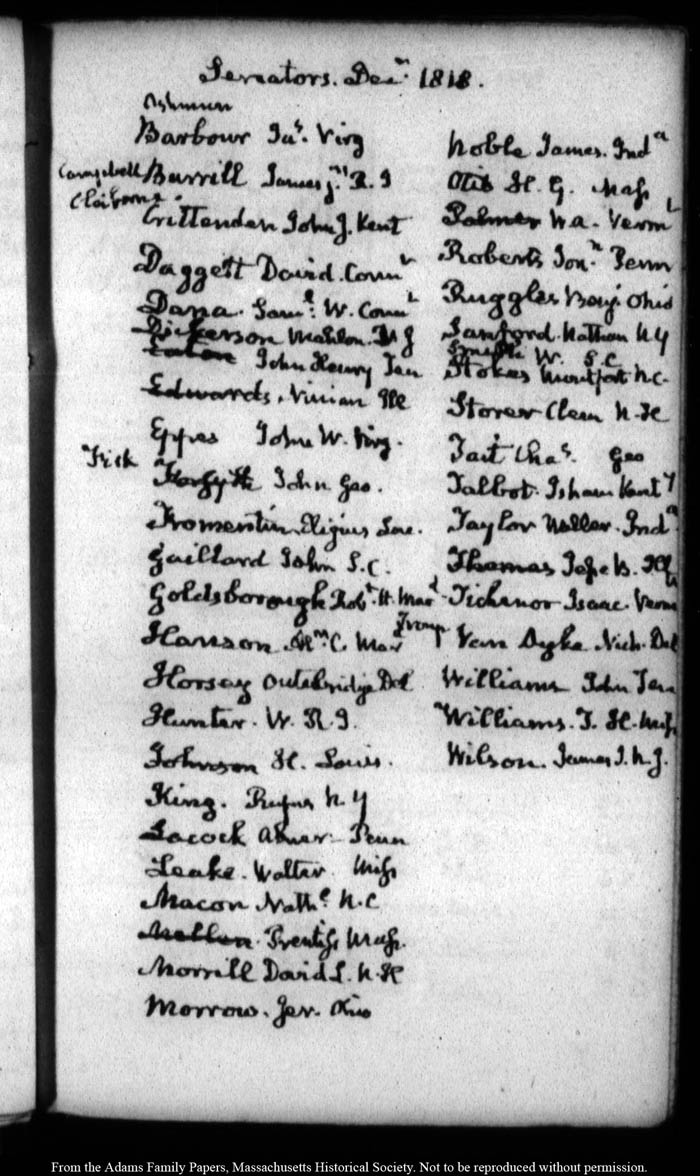 Senators. Decr. 1818.
Ashmun
Barbour Jas. Virg
Campbell Burrill James jr. R.I
Claiborne.
Crittenden John J. Kent
Daggett David. Connt
Dana. Saml. W. Connt
Dickerson Mahlon. N J
Eaton John Henry Ten
Edwards, Ninian Ill
Eppes John W. Virg.
Fisk
Forsyth John Geo.
Fromentin Eligius Loe.
Gaillard John S.C.
Goldsborough Robt. H. Mard
Hanson Alr. C. Mard
Horsey Outerbridge Del
Hunter. W. R.I.
Johnson H. Louis.
King. Rufus N.Y
Lacock Abner- Penn
Leake. Walter. Miss
Macon Nathl. N.C
Mellen. Prentiss Mass.
Morrill David L. N.H
Morrow. Jer. Ohio
Noble James. Inda
Otis H. G. Mass
Palmer Wa. Vermt
Roberts Jonn. Penn
Ruggles Benj. Ohio
Sanford. Nathan N Y
Smith W. S.C
Stokes Montfort N.C.
Storer Clem N-H
Tait Chas. Geo
Talbot. Isham Kenty
Taylor Waller. Inda
Thomas Jesse B. Ill
Tichenor Isaac. Vermt
Troup
Van Dyke Nich. Del
Williams John Ten
Williams. T. H. Miss
Wilson. James J. N.J.
From the Adams Family Papers, Massachusetts Historical Society. Not to be reproduced without permission.